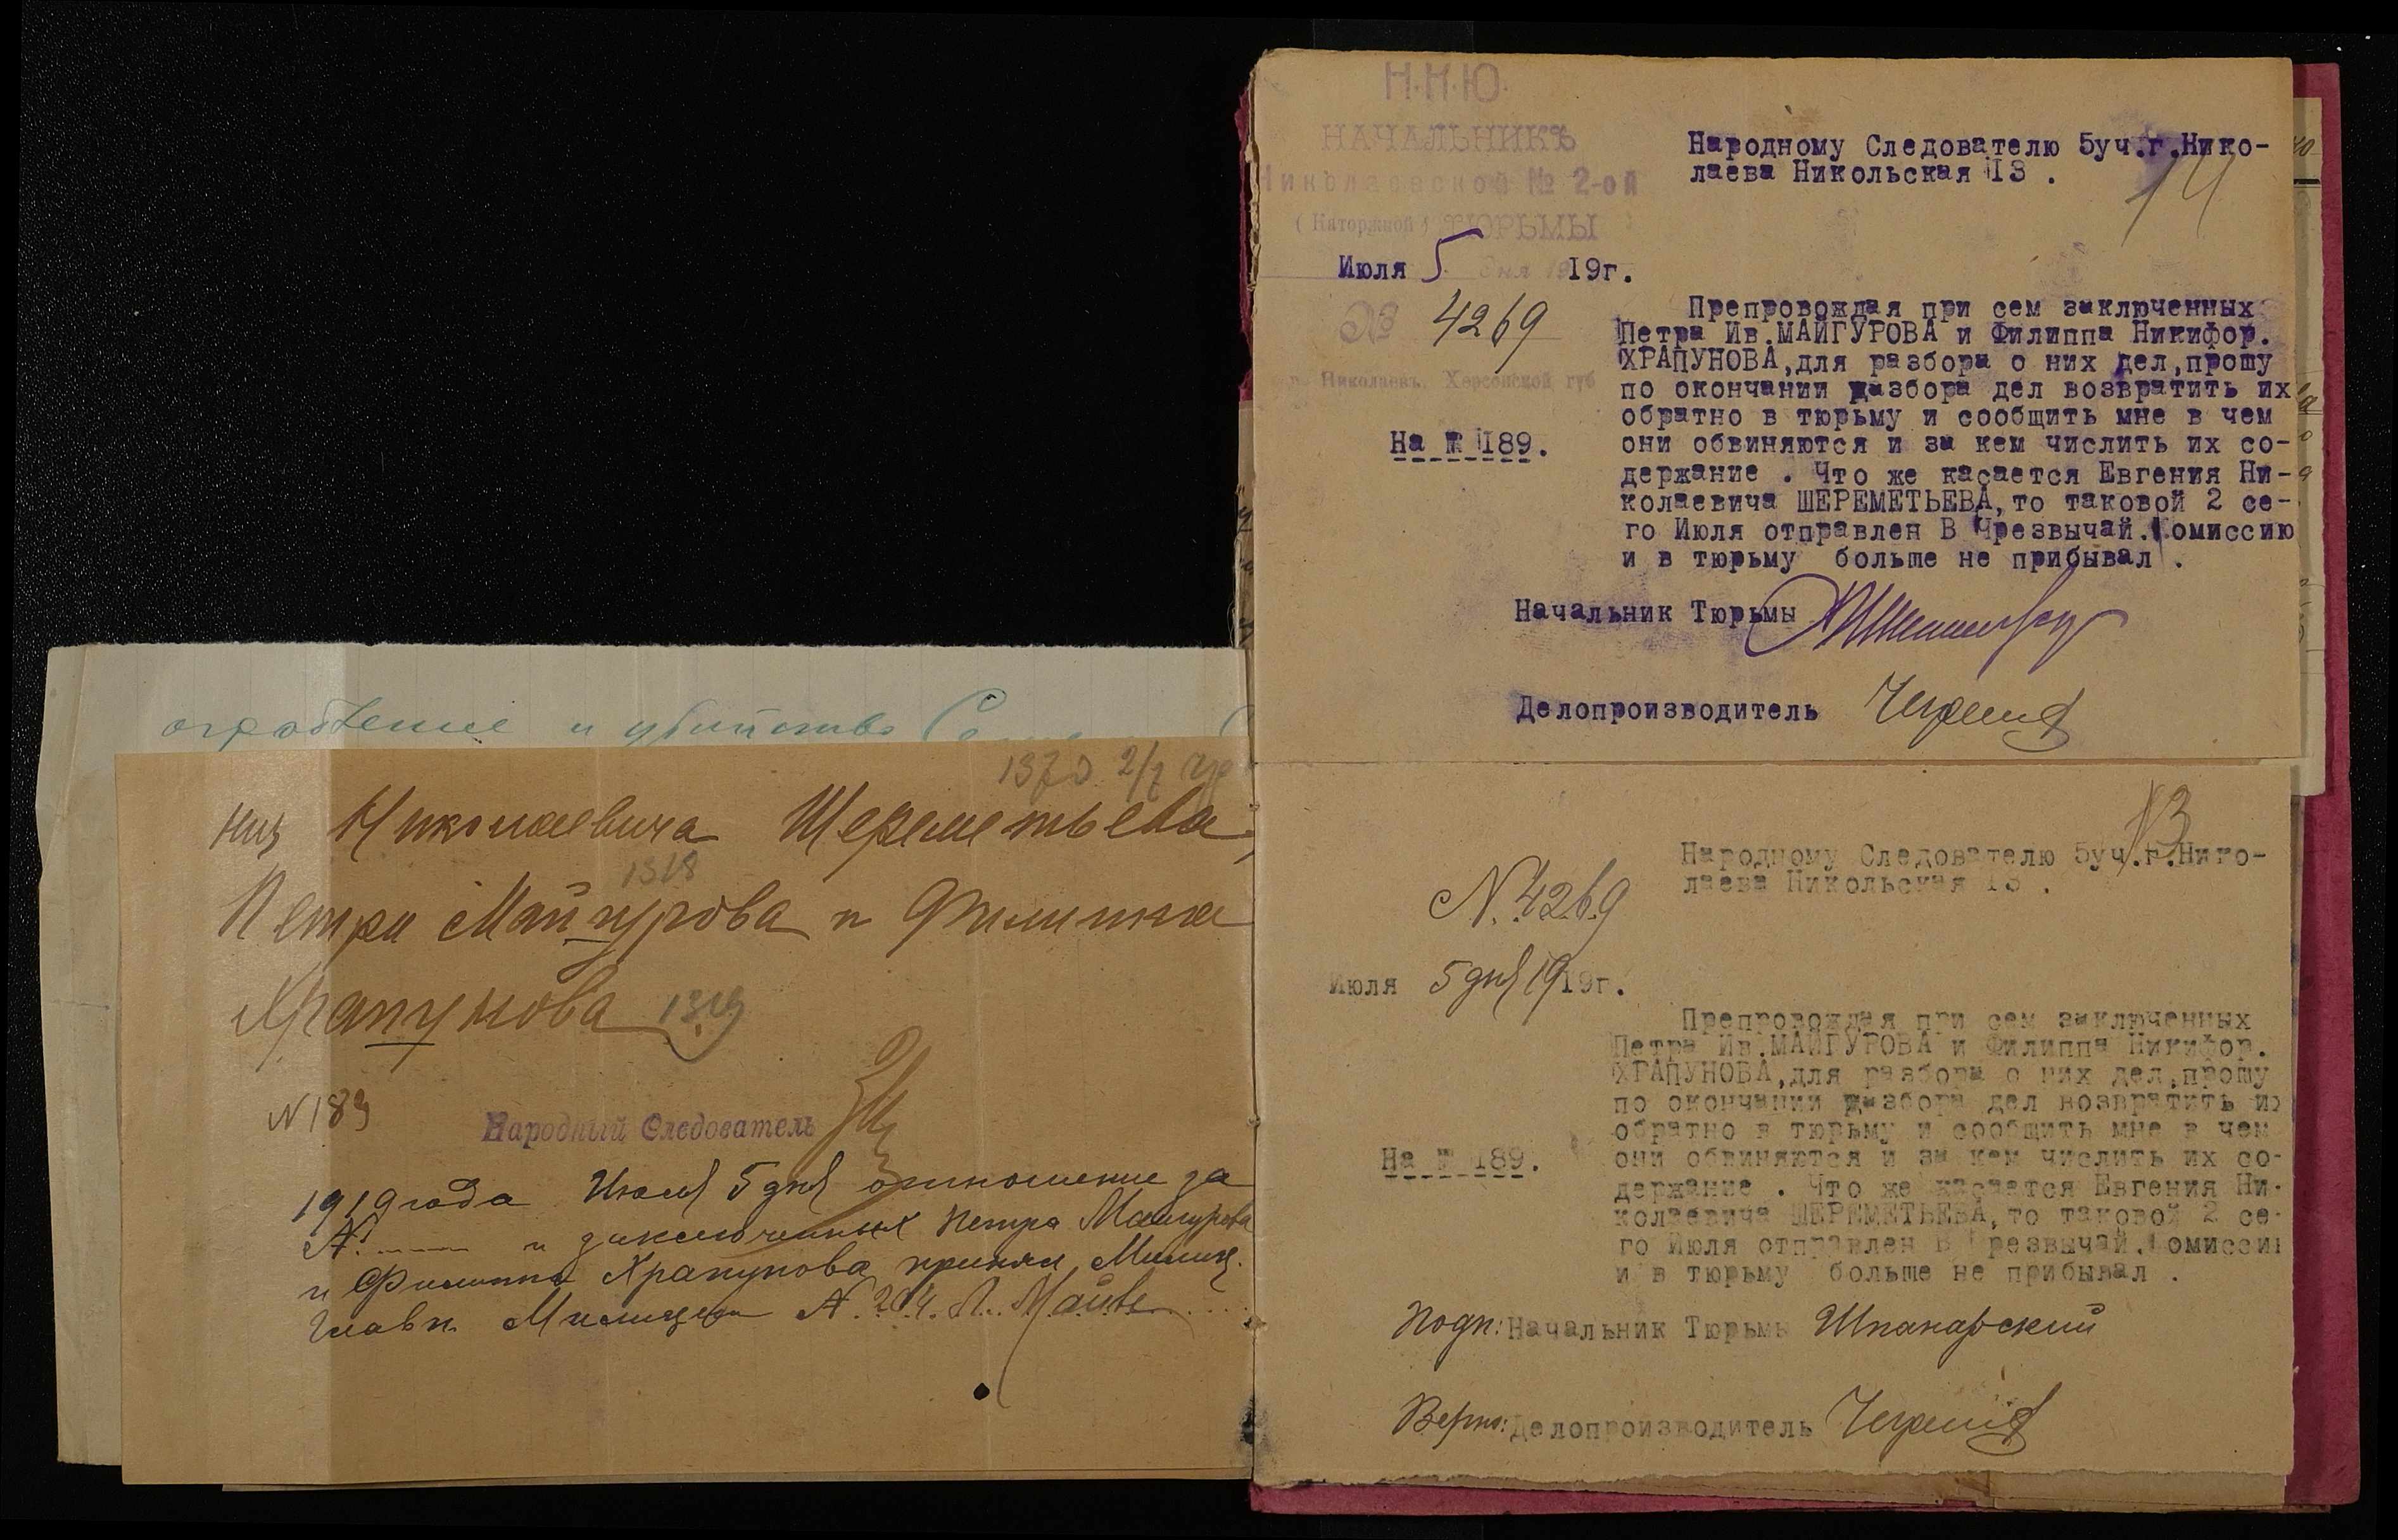 ограбление и убийство
1370 2/7
Ник Николаевича Шереметьева,
1318
Петра Майгурова и Филиппа
Храпунова 1319
N 189
Народный Следователь
1919 года Июля 5 дня отношение за
№ и заключенных Петра Майгурова
и Филиппа Храпунова принял Милиц.
Главн. Милиции № 204. Л.
Н.К.Ю.
НАЧАЛЬНИКЪ
Николаевской № 2-ой
(Каторжной) ТЮРЬМЫ
Июля 5 дня 1919г.
№ 4269
г. Николаевъ. Херсонской губ
На № 189.
Народному Следователю 5уч.г.Нико-
лаева Никольская 13 .
14
Препровождая при сем заключенных
Петра Ив.МАЙГУРОВА и Филиппа Никифор.
ХРАПУНОВА,для разбора о них дел,прошу
по окончании разбора дел возвратить их
обратно в тюрьму и сообщить мне в чем
они обвиняются и за кем числить их со-
держание . Что же касается Евгения Ни-
колаевича ШЕРЕМЕТЬЕВА,то таковой 2 се-
го Июля отправлен В Чрезвычай.Комиссию
и в тюрьму больше не прибывал .
Начальник Тюрьмы
Делопроизводитель
13
Народному Следователю 5уч.г.Нико-
лаева Никольская 13 .
N. 4269
Июля 5 дня 1919г.
Препровождая при сем заключенных
Петра Ив.МАЙГУРОВА и Филиппа Никифор.
ХРАПУНОВА,для разбора о них дел,прошу
по окончании разбора дел возвратить их
обратно в тюрьму и сообщить мне в чем
На № 189.
они обвиняются и за кем числить их со-
держание . Что же касается Евгения Ни-
колаевича ШЕРЕМЕТЬЕВА,то таковой 2 се-
го Июля отправлен В Чрезвычай.Комиссию
и в тюрьму больше не прибывал .
Подп: Начальник Тюрьмы Шпанарский
Верно: Делопроизводитель